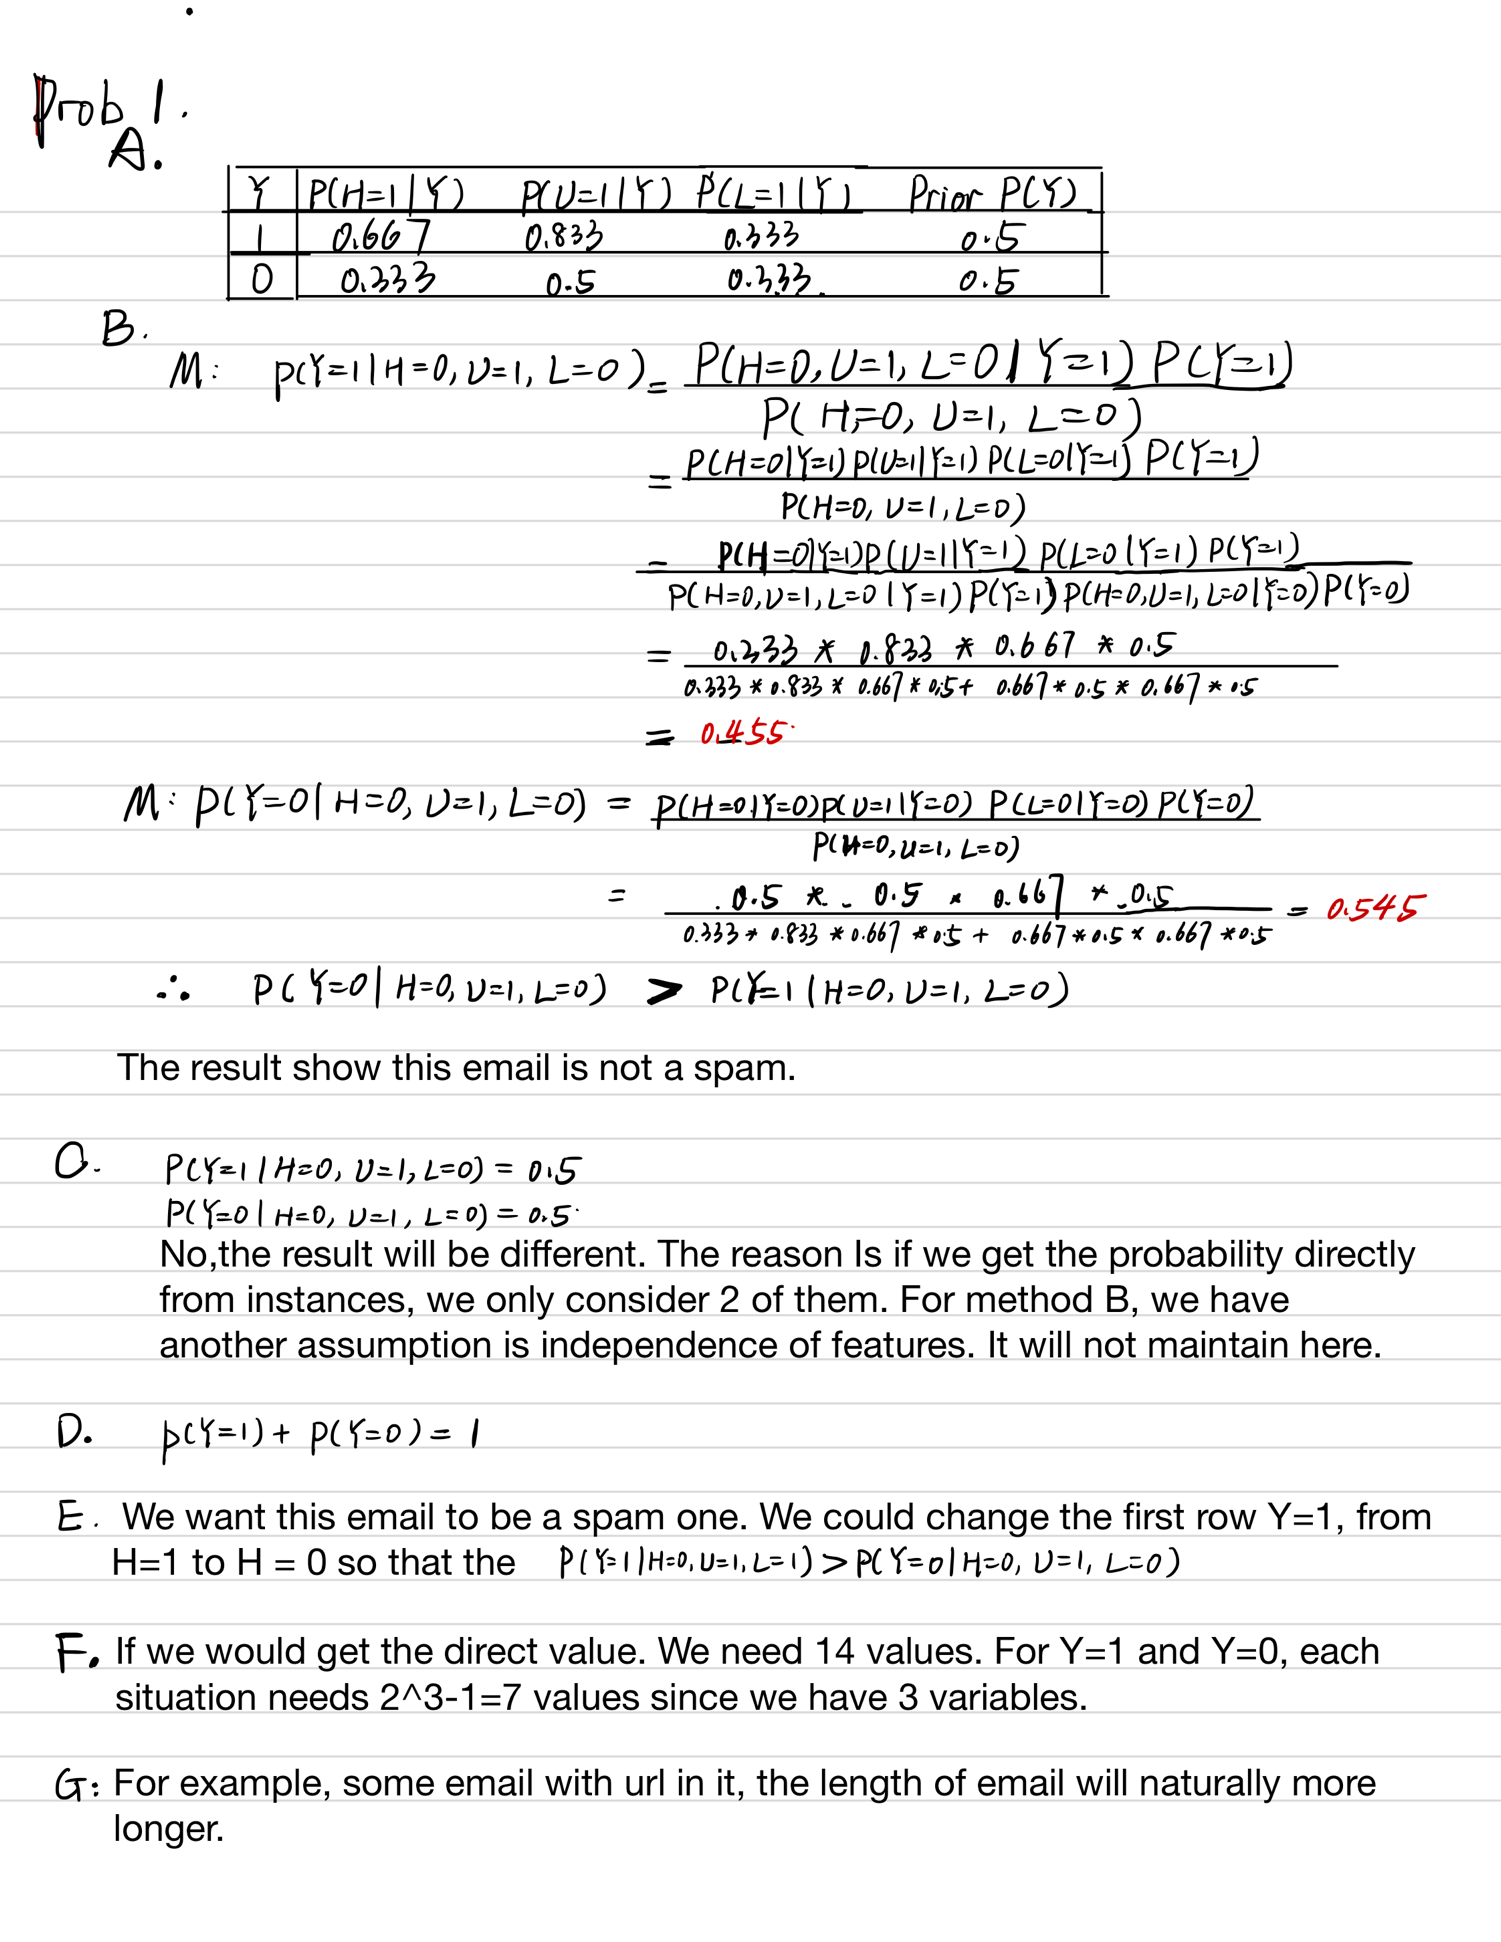 Prob 1.
A.
Y P(H=1|Y) P(U=1|Y) P(L=1|Y) Prior P(Y)
1 0.667 0.833 0.333 0.5
0 0.333 0.5 0.333 0.5
B.
M: P(Y=1|H=0, U=1, L=0) = P(H=0, U=1, L=0|Y=1) P(Y=1)
P(H=0, U=1, L=0)
= P(H=0|Y=1) P(U=1|Y=1) P(L=0|Y=1) P(Y=1)
P(H=0, U=1, L=0)
= P(H=0|Y=1) P(U=1|Y=1) P(L=0|Y=1) P(Y=1)
P(H=0, U=1, L=0|Y=1) P(Y=1) P(H=0, U=1, L=0|Y=0) P(Y=0)
= 0.333 * 0.833 * 0.667 * 0.5
0.333 * 0.833 * 0.667 * 0.5 + 0.667 * 0.5 * 0.667 * 0.5
= 0.455
M: P(Y=0|H=0, U=1, L=0) = P(H=0|Y=0) P(U=1|Y=0) P(L=0|Y=0) P(Y=0)
P(H=0, U=1, L=0)
= 0.5 * 0.5 * 0.667 * 0.5 = 0.545
0.333 * 0.833 * 0.667 * 0.5 + 0.667 * 0.5 * 0.667 * 0.5
∴ P(Y=0|H=0, U=1, L=0) > P(Y=1|H=0, U=1, L=0)
The result show this email is not a spam.
C. P(Y=1|H=0, U=1, L=0) = 0.5
P(Y=0|H=0, U=1, L=0) = 0.5
No,the result will be different. The reason Is if we get the probability directly
from instances, we only consider 2 of them. For method B, we have
another assumption is independence of features. It will not maintain here.
D. P(Y=1) + P(Y=0) = 1
E. We want this email to be a spam one. We could change the first row Y=1, from
H=1 to H = 0 so that the P(Y=1|H=0, U=1, L=1) > P(Y=0|H=0, U=1, L=0)
F. If we would get the direct value. We need 14 values. For Y=1 and Y=0, each
situation needs 2^3-1=7 values since we have 3 variables.
G: For example, some email with url in it, the length of email will naturally more
longer.